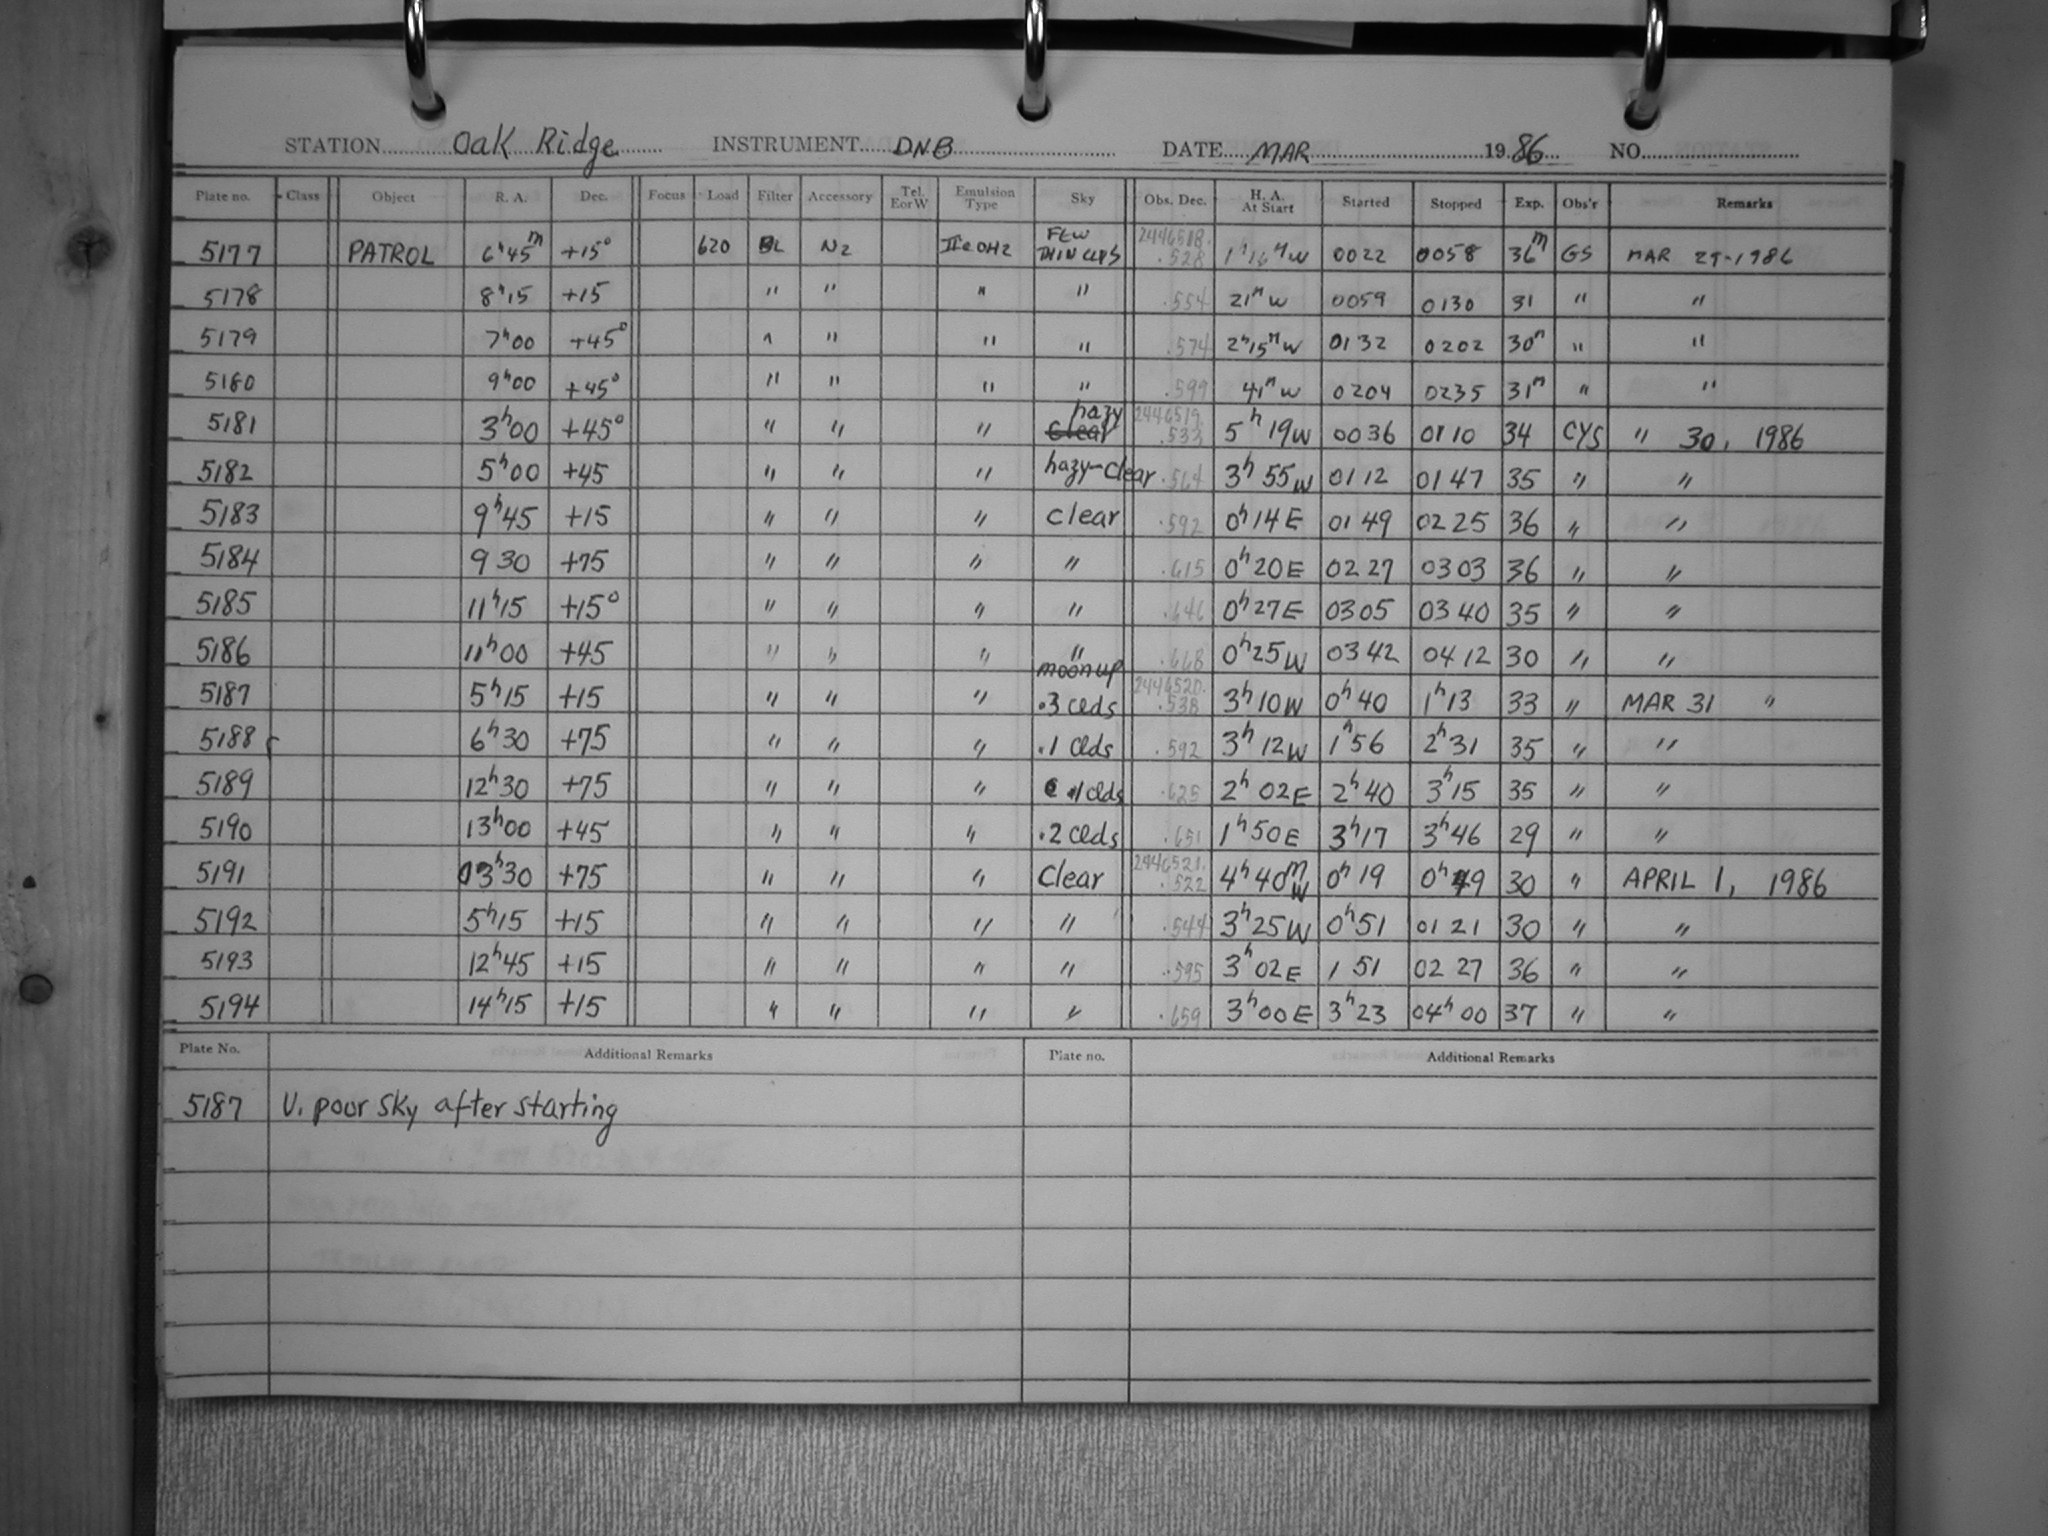 STATION Oak Ridge INSTRUMENT DNB DATE MAR 1986 NO.
Plate no. Class Object R. A. Dec. Focus Load Filter Accessory Tel. E or W Emulsion Type Sky Obs. Dec. H. A. At Start Started Stopped Exp. Obs'r Remarks
5177 PATROL 6h45m +15° 620 BL N2 IIaOH2 FEW THIN CLDS 2446518. .528 1h16m W 0022 0058 36m GS MAR 29-1986
5178 8h15 +15 " " " " .554 21m W 0059 0130 31 " "
5179 7h00 +45° " " " " .574 2h15m W 0132 0202 30m " "
5180 9h00 +45° " " " " .599 41m W 0204 0235 31m " "
5181 3h00 +45° " " " clear hazy 2446519. .533 5h 19W 0036 0110 34 CYS " 30, 1986
5182 5h00 +45 " " " hazy-clear .564 3h 55W 0112 0147 35 " "
5183 9h45 +15 " " " clear .592 0h14E 0149 0225 36 " "
5184 9 30 +75 " " " " .615 0h20E 0227 0303 36 " "
5185 11h15 +15° " " " " .646 0h27E 0305 0340 35 " "
5186 11h00 +45 " " " " .668 0h25W 0342 0412 30 " "
5187 5h15 +15 " " " moon up .3 clds 2446520. .538 3h10W 0h40 1h13 33 " MAR 31 "
5188 6h30 +75 " " " .1 clds .592 3h12W 1h56 2h31 35 " "
5189 12h30 +75 " " " .1 clds .625 2h02E 2h40 3h15 35 " "
5190 13h00 +45 " " " .2 clds .651 1h50E 3h17 3h46 29 " "
5191 03h30 +75 " " " Clear 2446521. .522 4h40m W 0h19 0h49 30 " APRIL 1, 1986
5192 5h15 +15 " " " " .544 3h25W 0h51 0121 30 " "
5193 12h45 +15 " " " " .595 3h02E 1 51 02 27 36 " "
5194 14h15 +15 " " " " .659 3h00E 3h23 04h00 37 " "
Plate No. Additional Remarks Plate no. Additional Remarks
5187 V. poor sky after starting